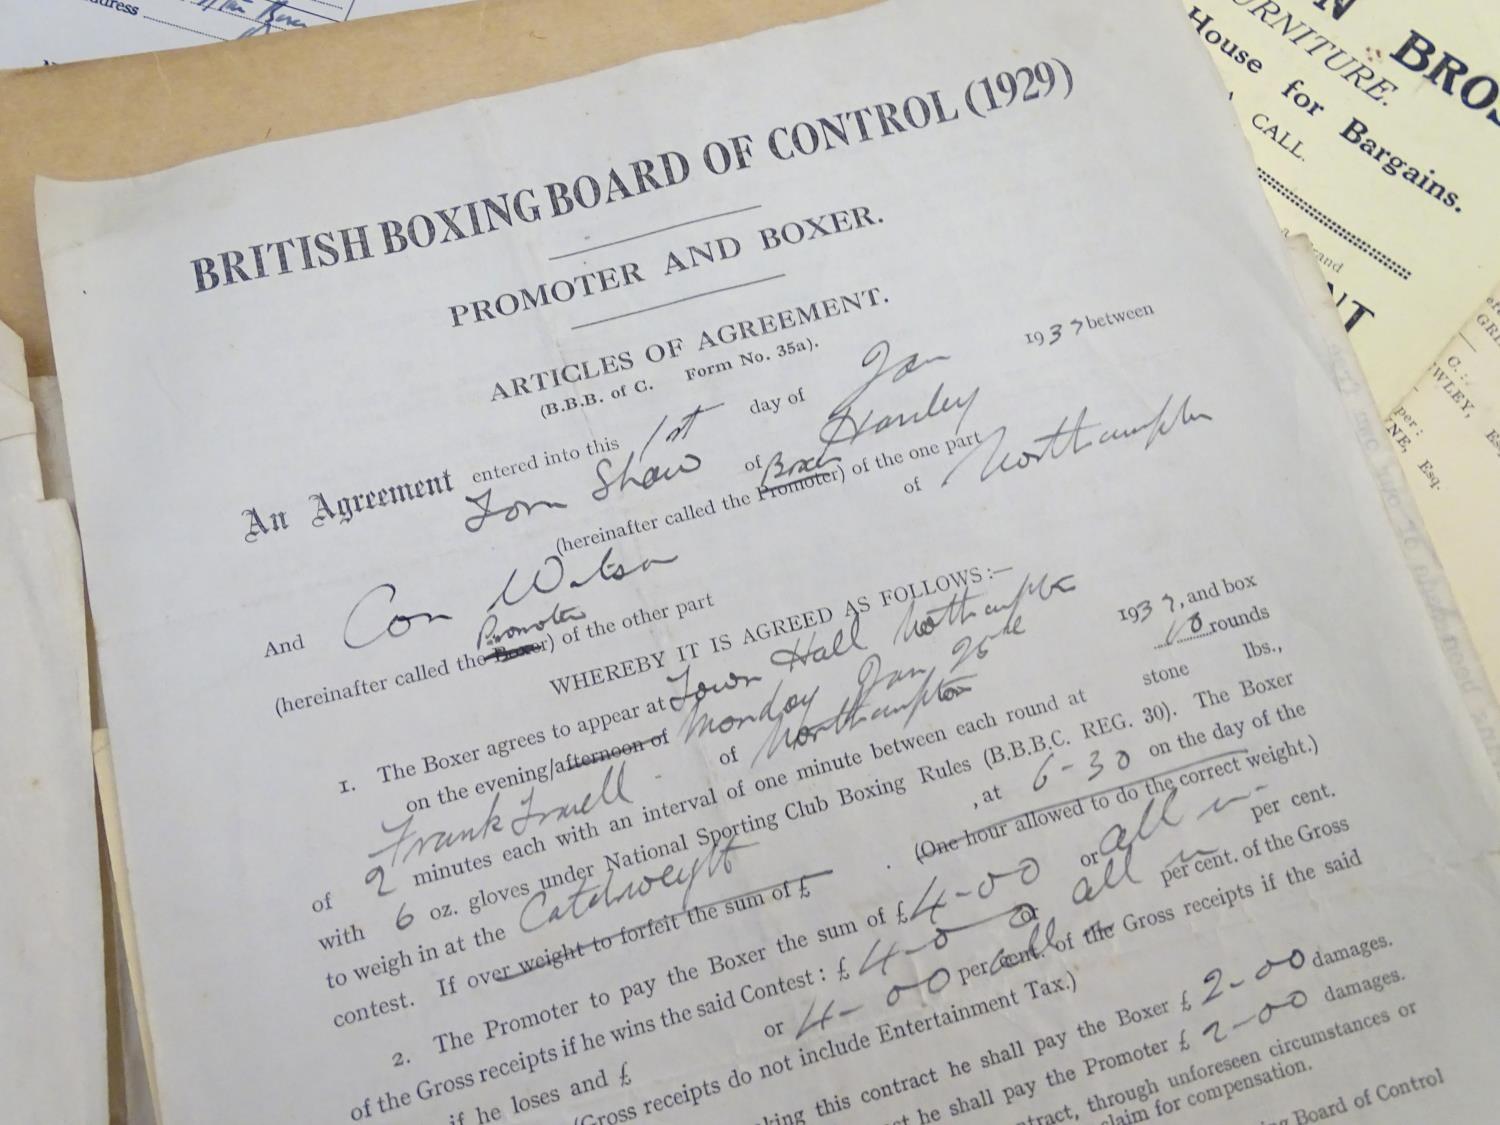 BRITISH BOXING BOARD OF CONTROL (1929)
PROMOTER AND BOXER.
ARTICLES OF AGREEMENT.
(B.B.B. of C. Form No. 35a).
An Agreement entered into this 1st day of Jan 1937 between
Tom Shaw of Hanley
(hereinafter called the Promoter Boxer) of the one part
And Con Watson of Northampton
(hereinafter called the Boxer Promoter) of the other part
WHEREBY IT IS AGREED AS FOLLOWS :—
1. The Boxer agrees to appear at Town Hall Northampton
on the evening/afternoon of Monday Jan 25 1937, and box
Frank of Northampton 10 rounds
of 2 minutes each with an interval of one minute between each round at stone lbs.,
with 6 oz. gloves under National Sporting Club Boxing Rules (B.B.B.C. REG. 30). The Boxer
to weigh in at the Catchweight , at 6-30 on the day of the
contest. If over weight to forfeit the sum of £ . (One hour allowed to do the correct weight.)
2. The Promoter to pay the Boxer the sum of £4-00 or all in per cent.
of the Gross receipts if he wins the said Contest : £4-0-0 or all in per cent. of the Gross
if he loses and £ or 4-00 all per cent. of the Gross receipts if the said
(Gross receipts do not include Entertainment Tax.)
king this contract he shall pay the Boxer £ 2-00 damages.
he shall pay the Promoter £ 2-00 damages.
tract, through unforeseen circumstances or
claim for compensation.
Board of Control
BROS
URNITURE.
House for Bargains.
CALL.
and
NT
per:
Esq.